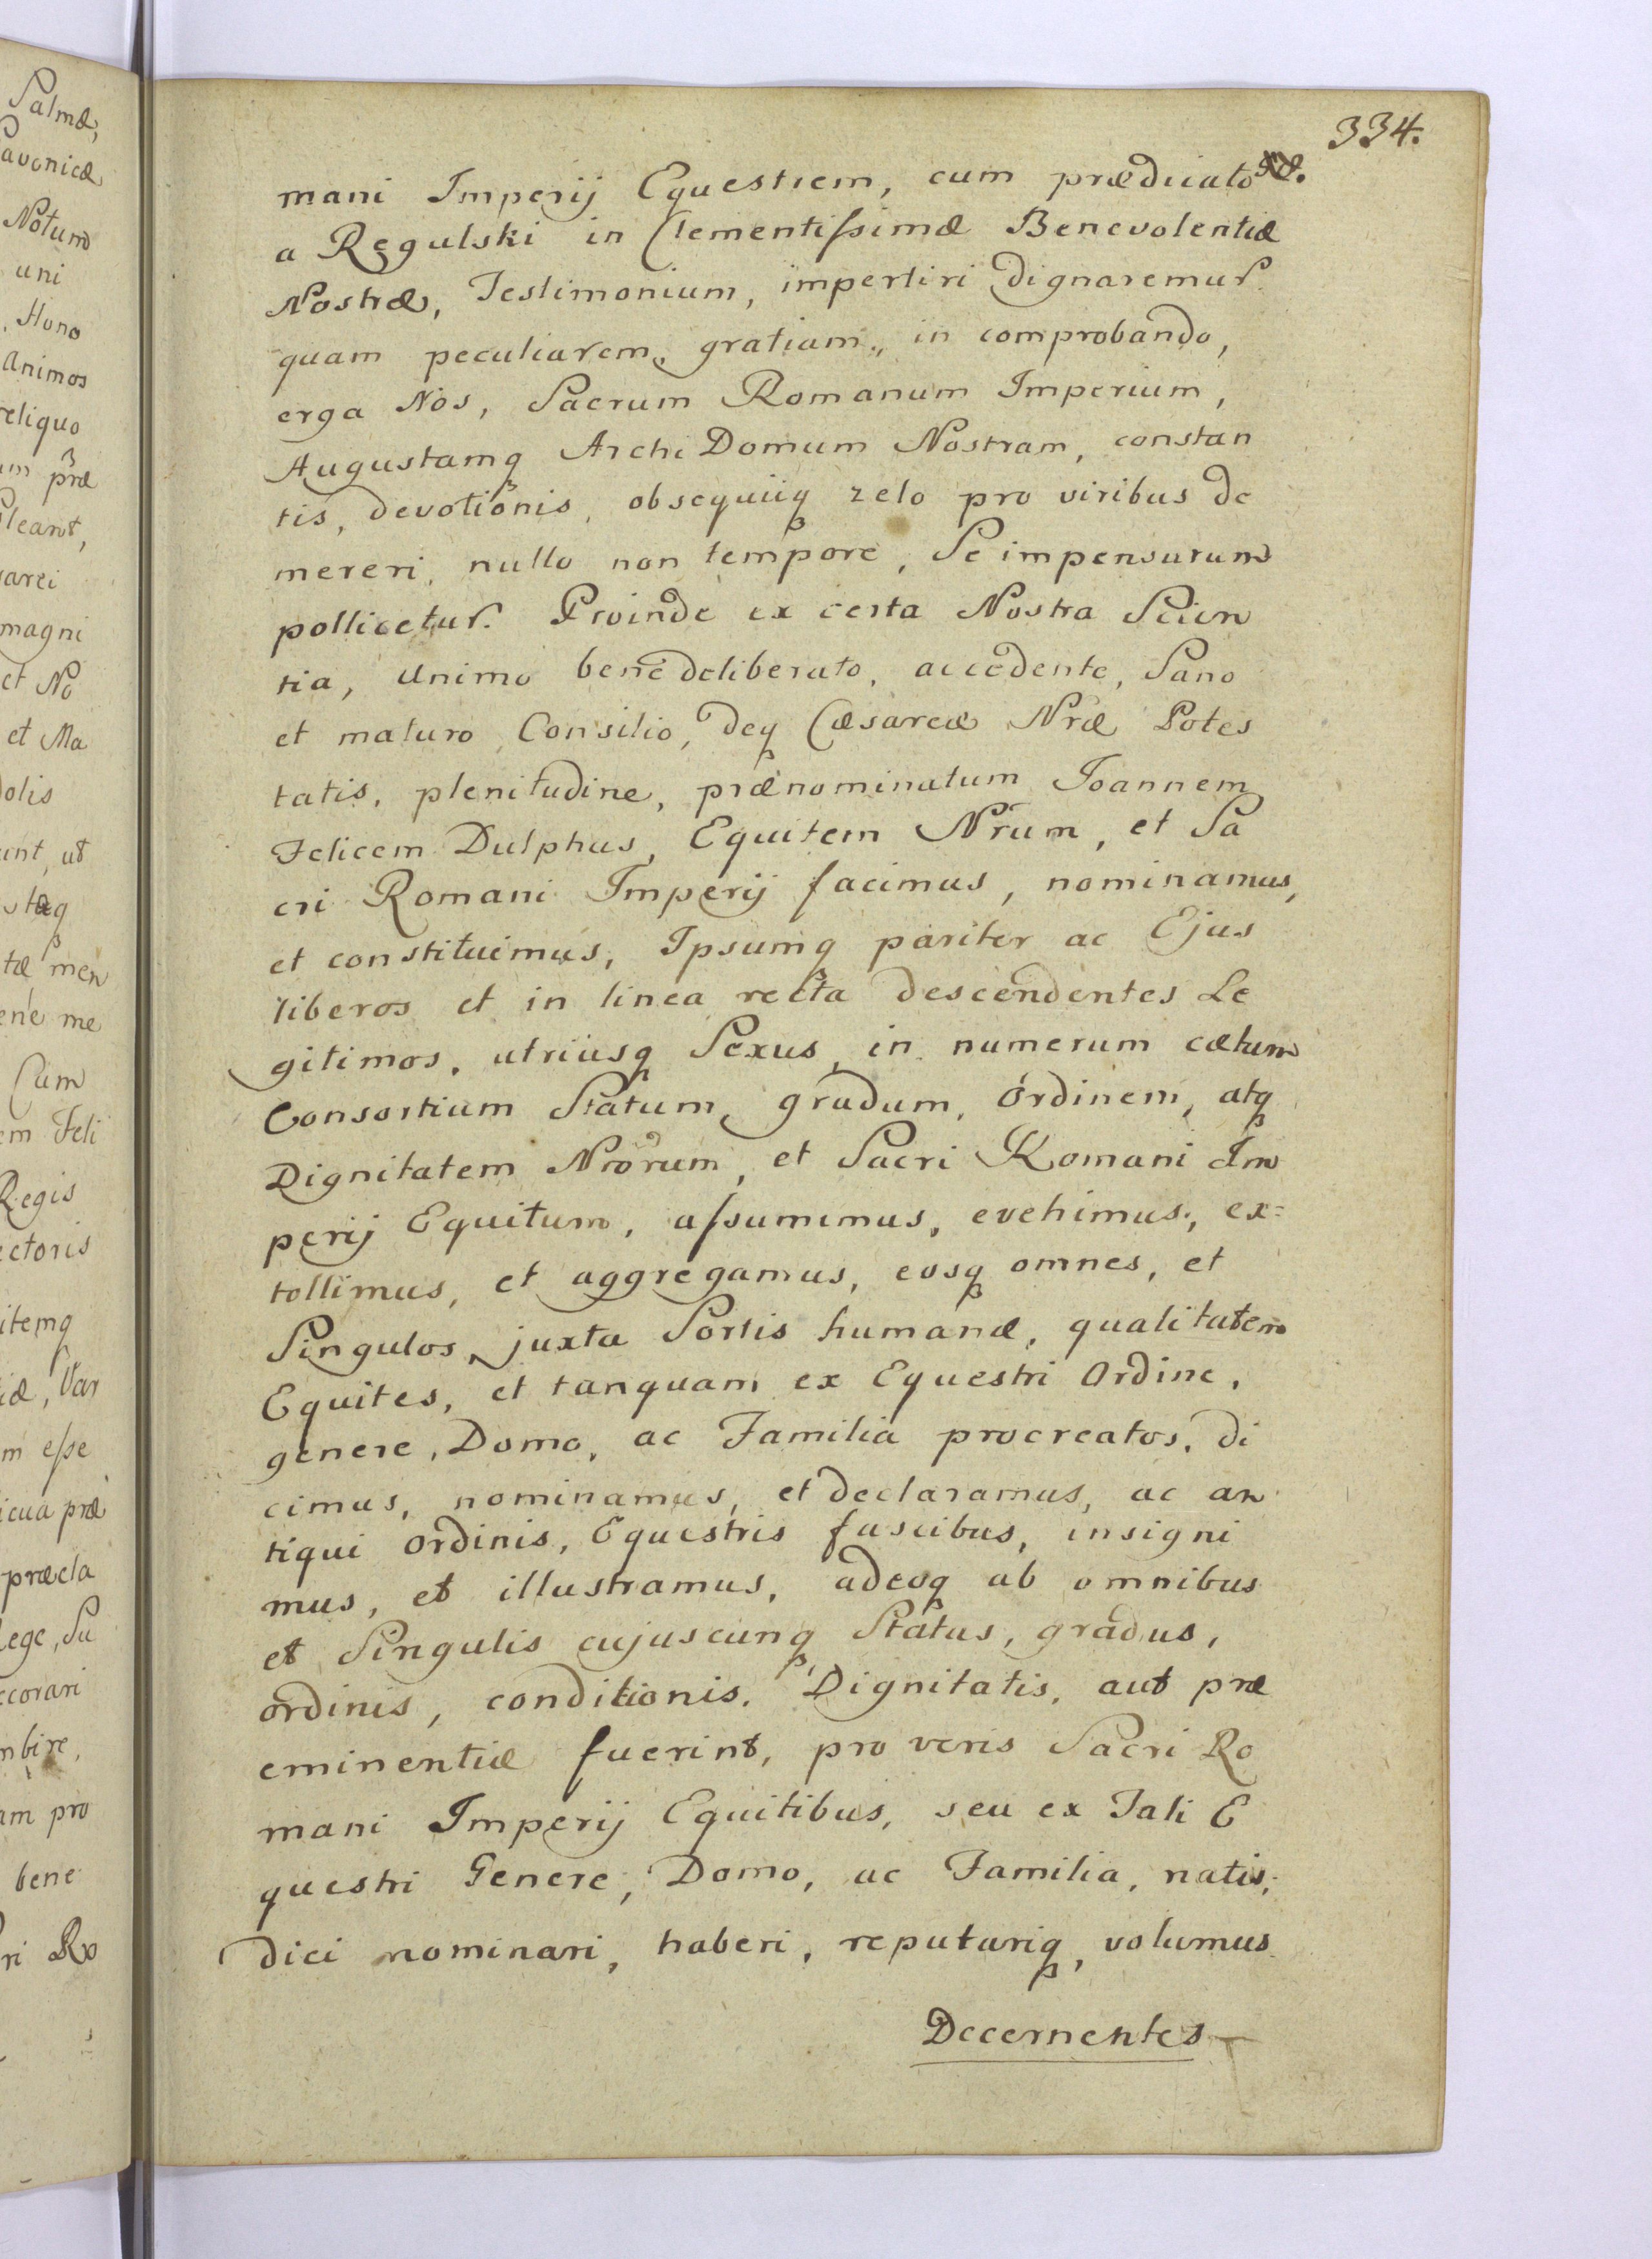 334.
mani Imperij Equestrem, cum prædicato
a Regulski in Clementissimæ Benevolentiæ
Nostræ, Testimonium, impertiri dignaremur.
quam peculiarem, gratiam, in comprobando,
erga Nos, Sacrum Romanum Imperium,
Augustamq Archi Domum Nostram, constan
tis, devotionis, obsequiiq zelo pro viribus de
mereri, nullo non tempore, Se impensurum
pollicetur. Proinde ex certa Nostra Scien
tia, Animo bene deliberato, accedente, Sano
et maturo Consilio, deq Cæsareæ Nræ Potes
tatis, plenitudine, prænominatum Joannem
Felicem Dulphus, Equitem Nrum, et Sa
cri Romani Imperij facimus, nominamus,
et constituimus, Ipsumq pariter ac Ejus
liberos et in linea recta descendentes Le
gitimos, utriusq Sexus, in numerum cætum
Consortium Statum, gradum, Ordinem, atq
Dignitatem Nrorum, et Sacri Romani Im
perij Equitum, assumimus, evehimus, ex=
tollimus, et aggregamus, eosq omnes, et
Singulos, juxta Sortis humanæ, qualitatem
Equites, et tanquam ex Equestri Ordine,
genere, Domo, ac Familia procreatos, di
cimus, nominamus, et declaramus, ac an
tiqui Ordinis, Equestris fascibus, insigni
mus, et illustramus, adeoq ab omnibus
et Singulis cujuscunq Status, gradus,
ordinis, conditionis, Dignitatis, aut præ
eminentiæ fuerint, pro veris Sacri Ro
mani Imperij Equitibus, seu ex Tali E
questri Genere, Domo, ac Familia, natis,
dici nominari, haberi, reputariq, volumus
Decernentes
Palmæ,
avonicæ
Notum
uni
Hono
Animos
reliquo
præ
magni
et No
et Ma
Cum
Feli
Regis
ectoris
itemq
Var
m esse
icua præ
præcla
Lege, Su
am pro
bene
ri Ro